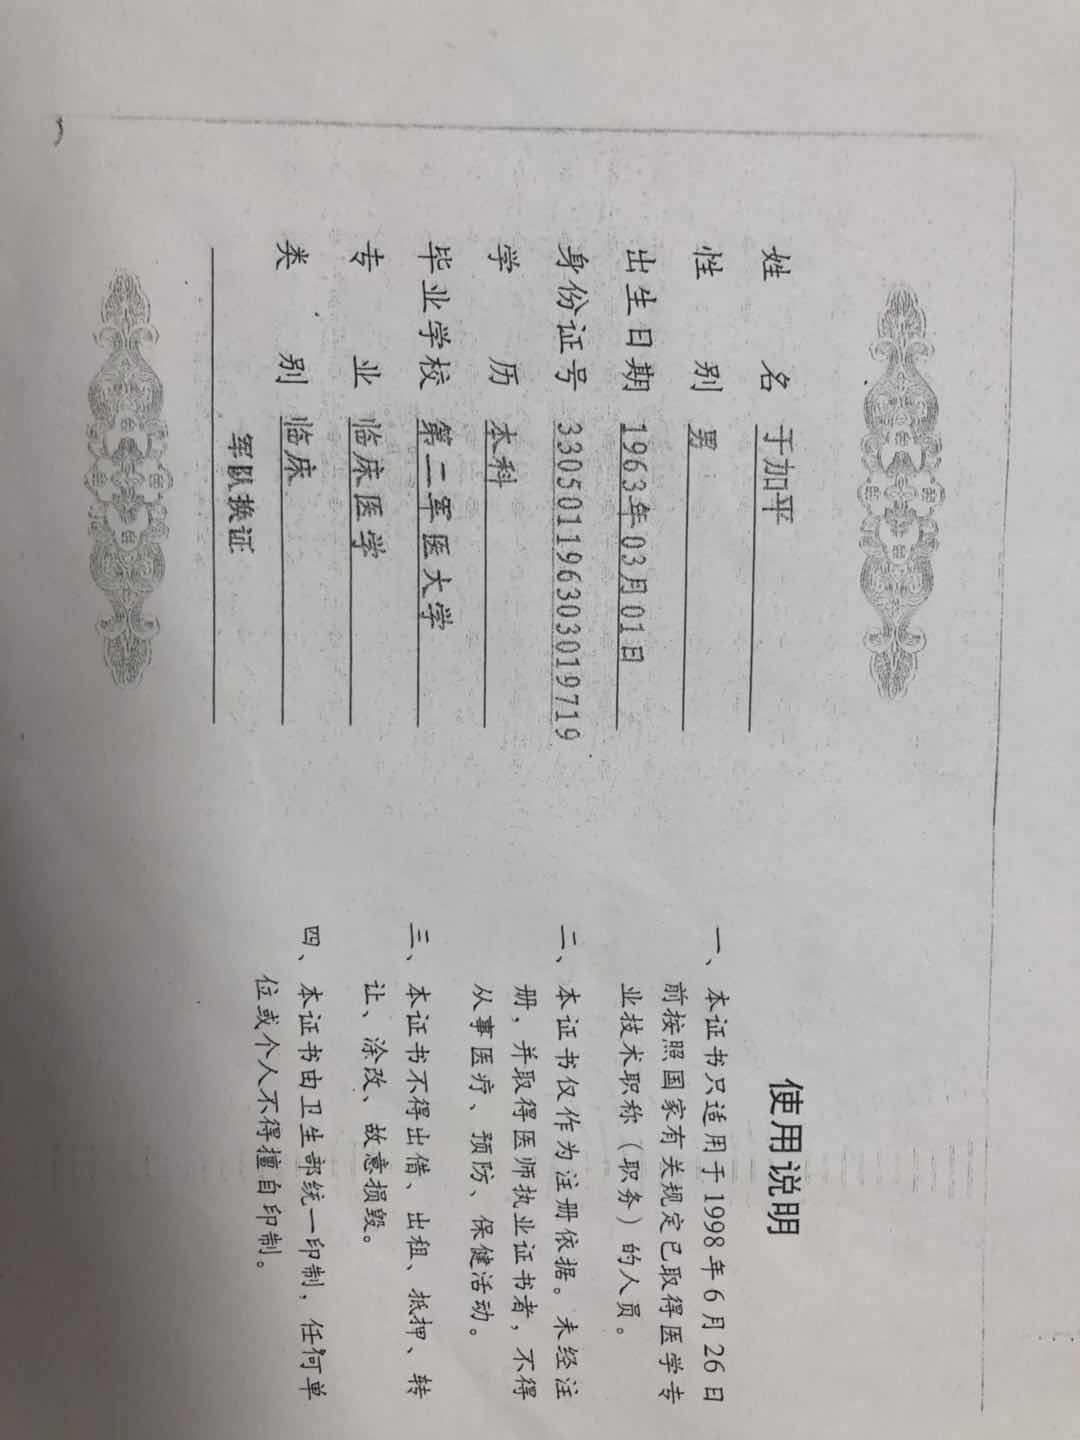 姓名 于加平
性别 男
出生日期 1963年03月01日
身份证号 330501196303019719
学历 本科
毕业学校 第二军医大学
专业 临床医学
类别 临床
军队换证
使用说明
一、本证书只适用于1998年6月26日
前按照国家有关规定已取得医学专
业技术职称（职务）的人员。
二、本证书仅作为注册依据。未经注
册，并取得医师执业证书者，不得
从事医疗、预防、保健活动。
三、本证书不得出借、出租、抵押、转
让、涂改、故意损毁。
四、本证书由卫生部统一印制，任何单
位或个人不得擅自印制。